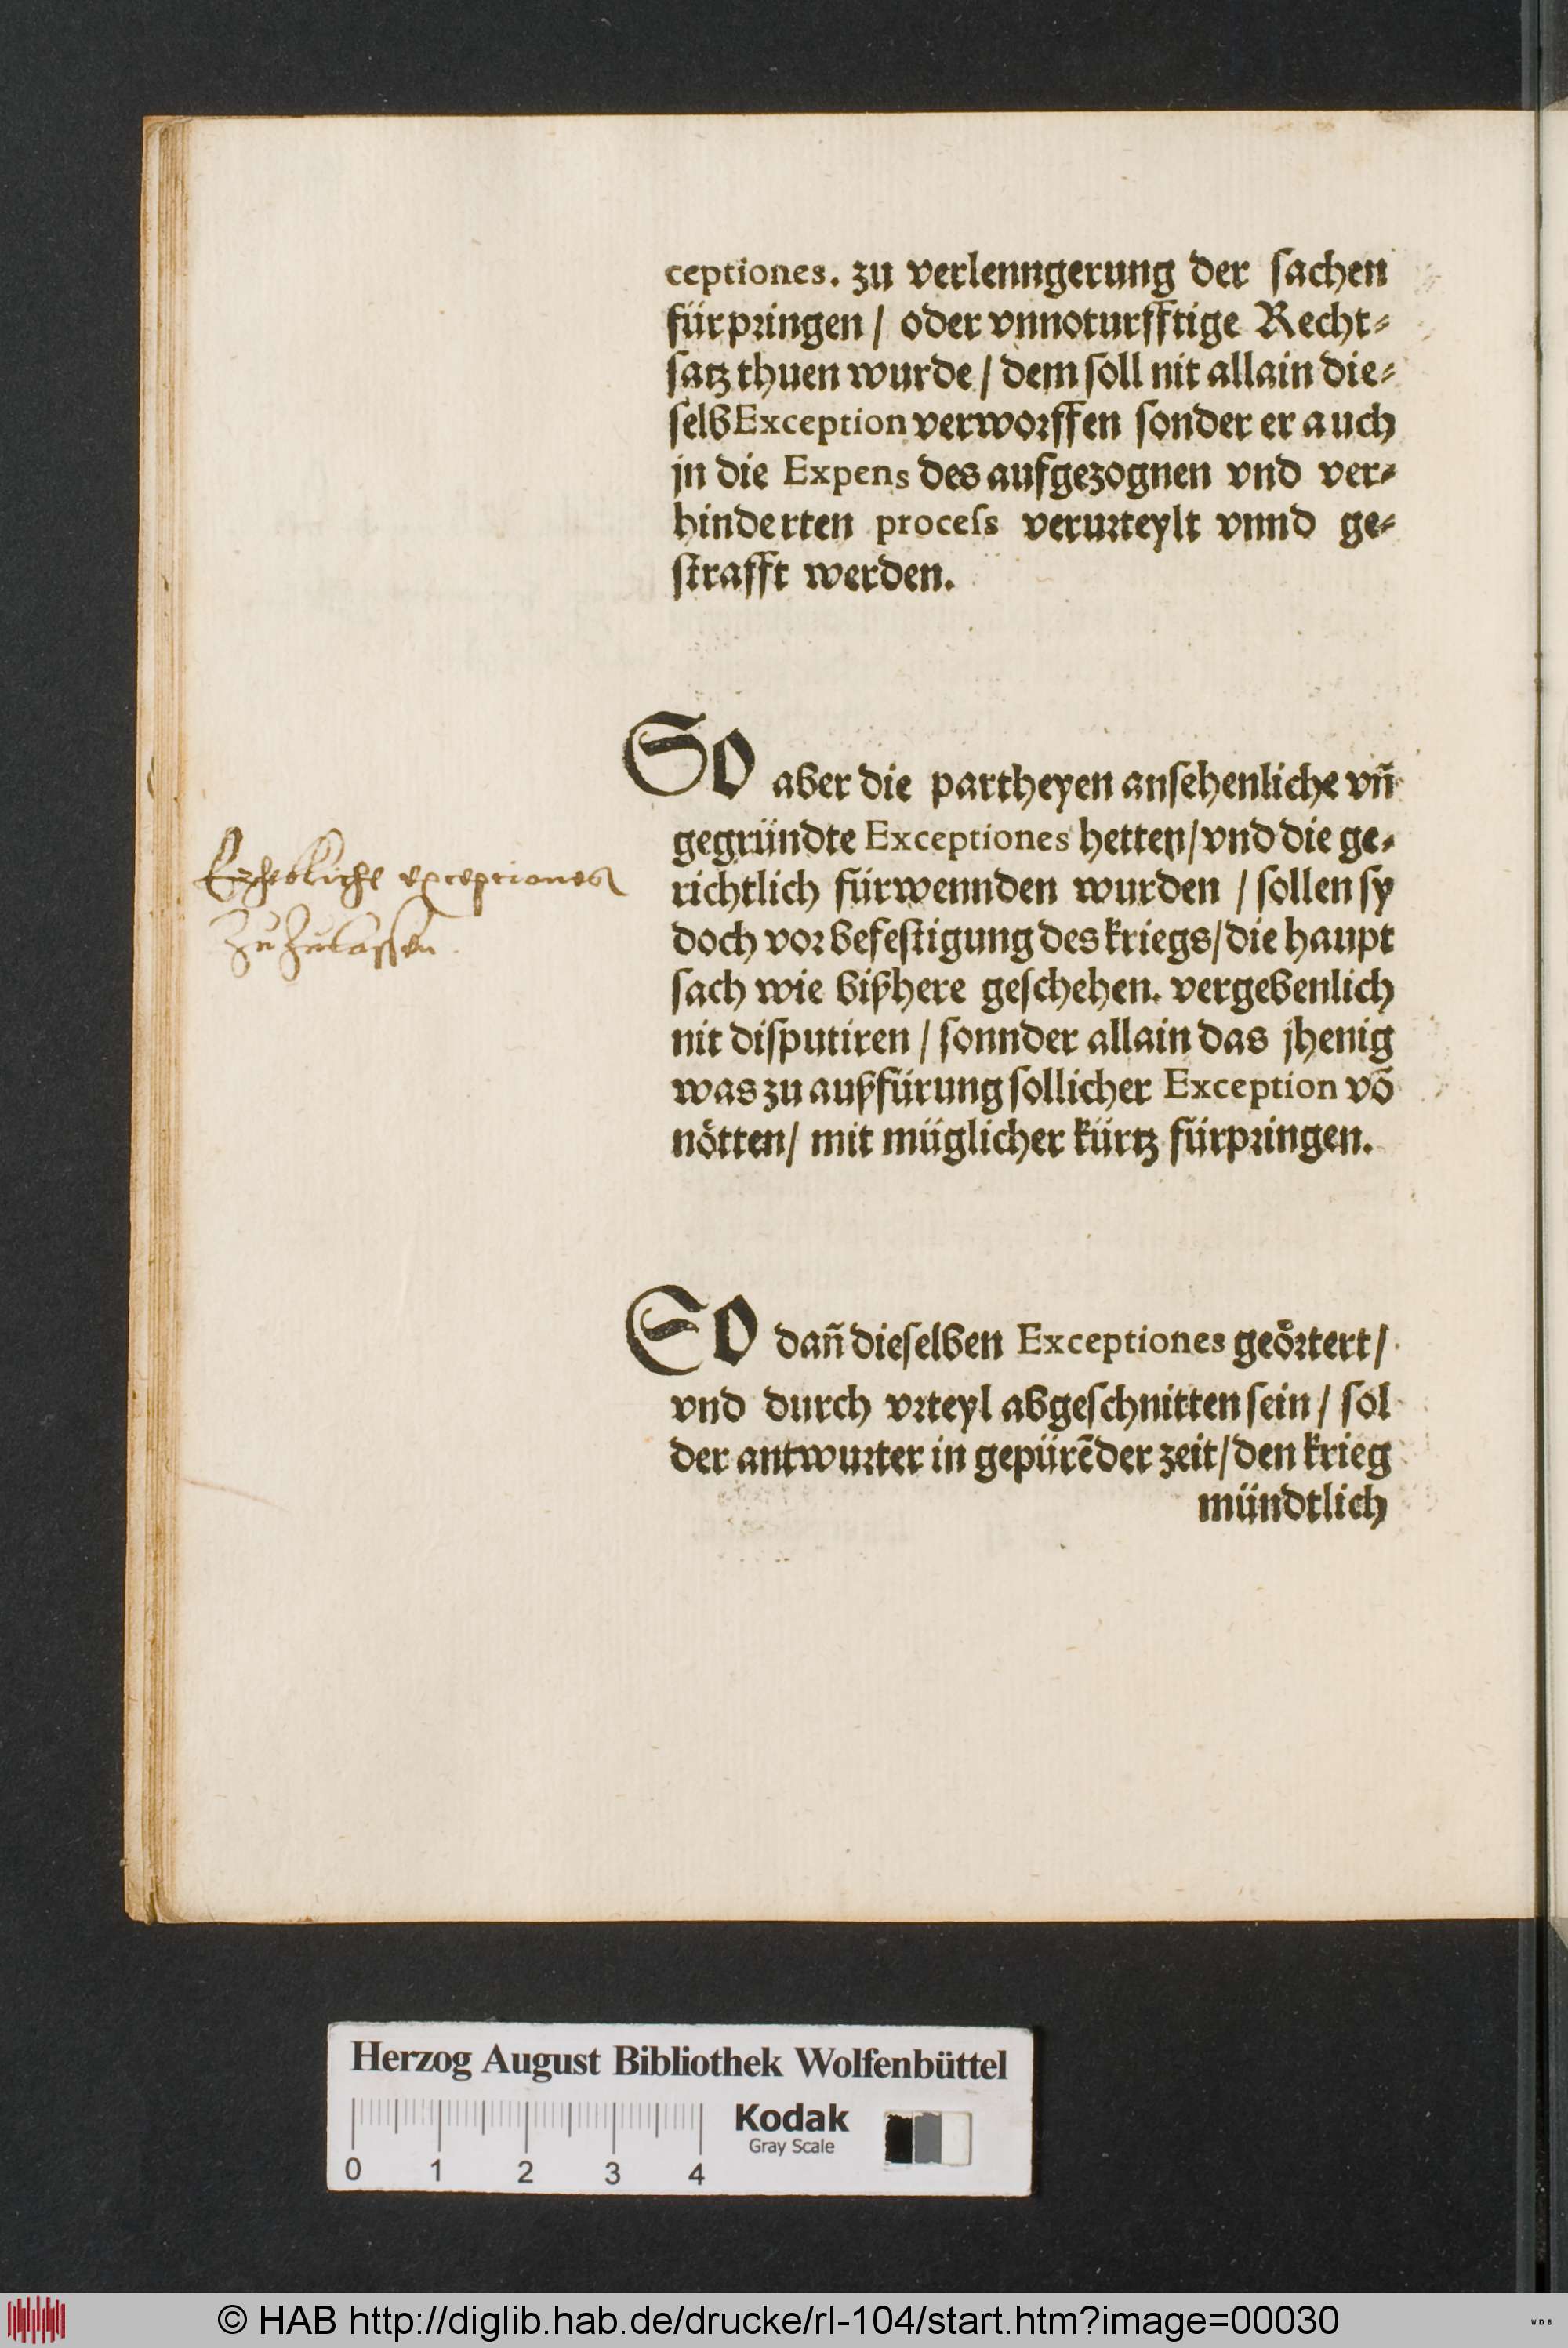 ceptiones. zu verlenngerung der sachen
fürpringen / oder vnnoturfftige Recht⸗
satz thuen wurde / dem soll nit allain die⸗
selb Exception verworffen sonder er auch
jn die Expens des aufgezognen vnd ver⸗
hinderten process verurteylt vnnd ge⸗
strafft werden.
SO aber die partheyen ansehenliche vñ
gegründte Exceptiones hetten / vnd die ge⸗
Erhebliche exceptiones
richtlich fürwennden wurden / sollen sy
zu zulassen.
doch vor befestigung des kriegs / die haupt
sach wie bißhere geschehen. vergebenlich
nit disputiren / sonnder allain das jhenig
was zu außfürung sollicher Exception võ
nötten / mit müglicher kürtz fürpringen.
SO dañ dieselben Exceptiones geörtert /
vnd durch vrteyl abgeschnitten sein / sol
der antwurter in gepürẽder zeit / den krieg
mündtlich
Herzog August Bibliothek Wolfenbüttel
Kodak
Gray Scale
0 1 2 3 4
© HAB http://diglib.hab.de/drucke/rl-104/start.htm?image=00030
WDB